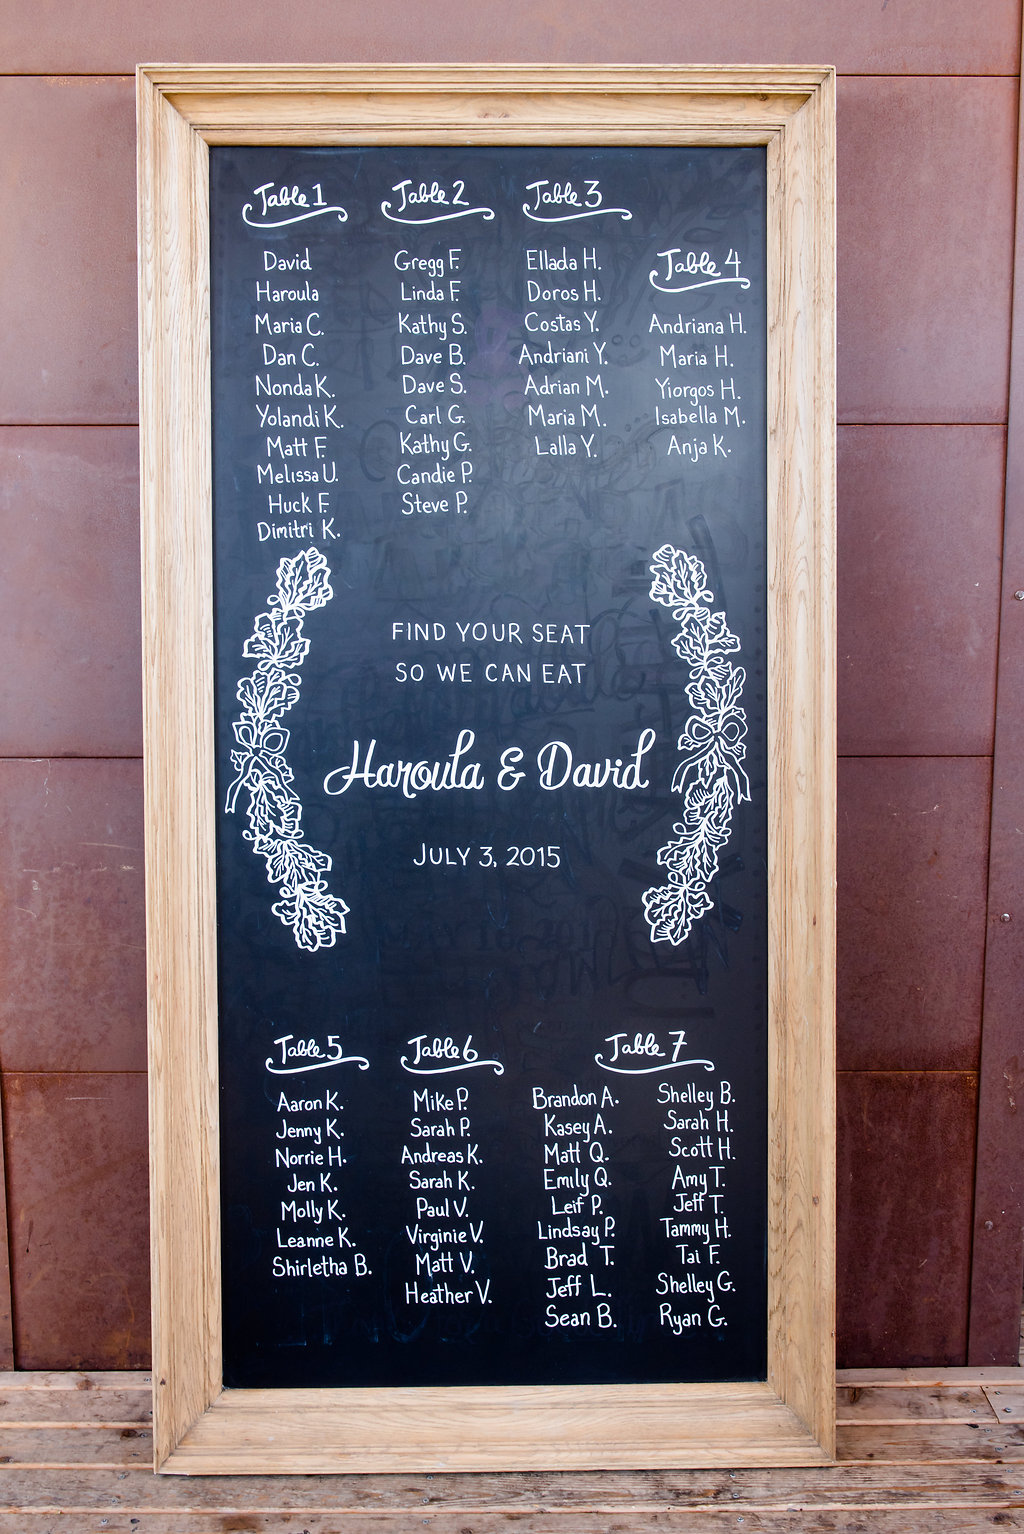 Table 1
David
Haroula
Maria C.
Dan C.
Nonda K.
Yolandi K.
Matt F.
Melissa U.
Huck F.
Dimitri K.
Table 2
Gregg F.
Linda F.
Kathy S.
Dave B.
Dave S.
Carl G.
Kathy G.
Candie P.
Steve P.
Table 3
Ellada H.
Doros H.
Costas Y.
Andriani Y.
Adrian M.
Maria M.
Lalla Y.
Table 4
Andriana H.
Maria H.
Yiorgos H.
Isabella M.
Anja K.
FIND YOUR SEAT
SO WE CAN EAT
Haroula & David
JULY 3, 2015
Table 5
Aaron K.
Jenny K.
Norrie H.
Jen K.
Molly K.
Leanne K.
Shirletha B.
Table 6
Mike P.
Sarah P.
Andreas K.
Sarah K.
Paul V.
Virginie V.
Matt V.
Heather V.
Table 7
Brandon A.
Kasey A.
Matt Q.
Emily Q.
Leif P.
Lindsay P.
Brad T.
Jeff L.
Sean B.
Shelley B.
Sarah H.
Scott H.
Amy T.
Jeff T.
Tammy H.
Tai F.
Shelley G.
Ryan G.